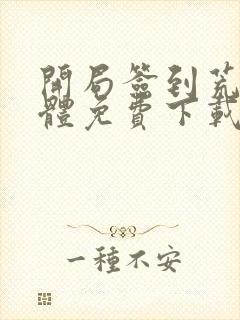 開局簽到荒
體免費下載
一種不安